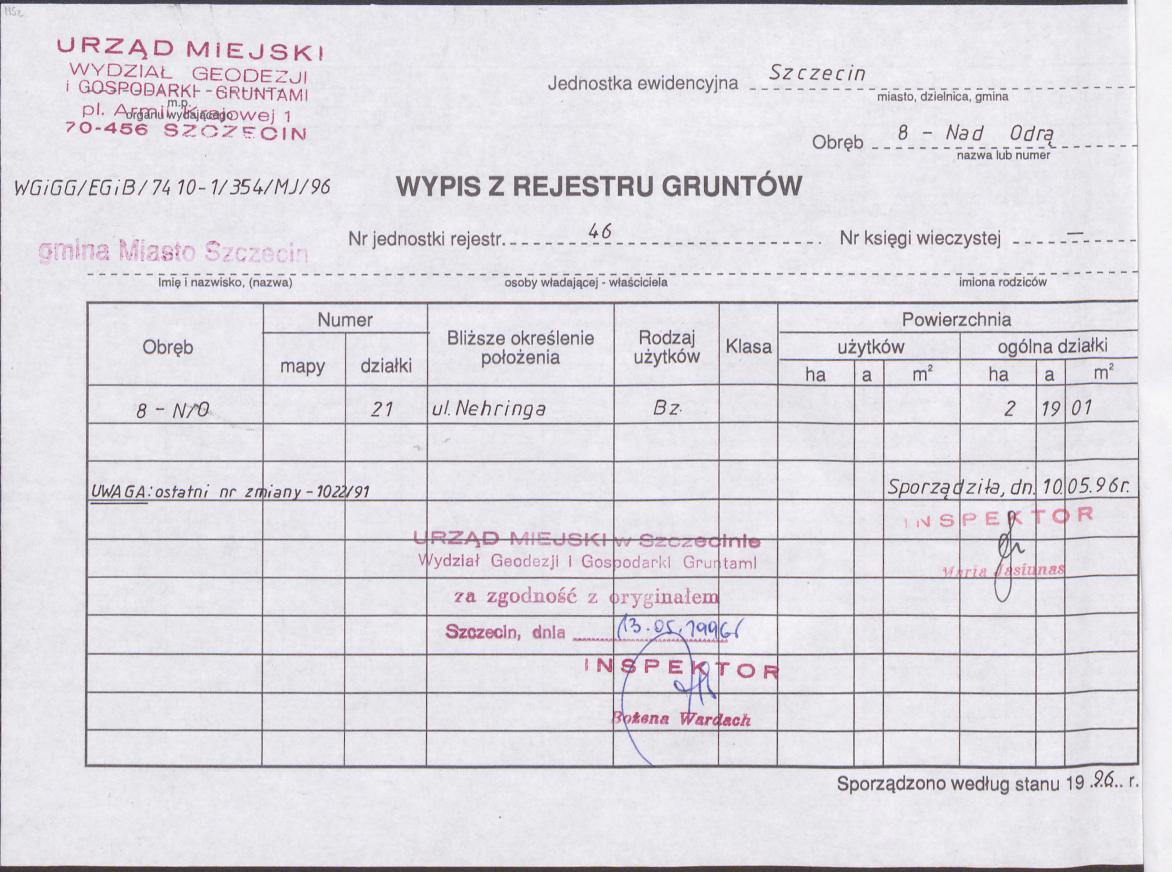 URZĄD MIEJSKI
WYDZIAŁ GEODEZJI
i GOSPODARKI GRUNTAMI
m.p.
pl. Armii Krajowej 1
organu wydającego
70-456 SZCZECIN
Jednostka ewidencyjna Szczecin
miasto, dzielnica, gmina
Obręb 8 - Nad Odrą
nazwa lub numer
WGiGG/EGiB/7410-1/354/MJ/96
WYPIS Z REJESTRU GRUNTÓW
Nr jednostki rejestr. 46 Nr księgi wieczystej —
gmina Miasto Szczecin
Imię i nazwisko, (nazwa) osoby władającej - właściciela imiona rodziców
Obręb Numer Bliższe określenie położenia Rodzaj użytków Klasa Powierzchnia
mapy działki użytków ogólna działki
ha a m² ha a m²
8 - N/O 21 ul. Nehringa Bz. 2 19 01
UWAGA: ostatni nr zmiany - 1022/91 Sporządziła, dn. 10.05.96r.
INSPEKTOR
Maria Jasiunas
URZĄD MIEJSKI w Szczecinie
Wydział Geodezji i Gospodarki Gruntami
za zgodność z oryginałem
Szczecin, dnia 13.05.1996r
INSPEKTOR
Bożena Wardach
Sporządzono według stanu 19 96 r.